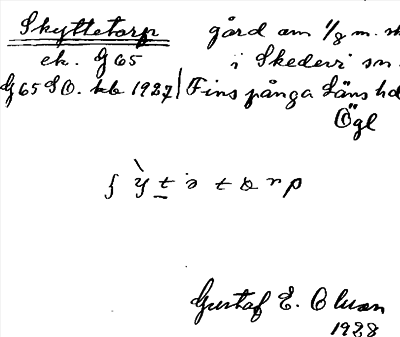 Skyttetorp gård am 1/8 m.
ek. G 65 i Skedevi sn.
G 65 SO. kb 1927 Finspånga läns hd
Ögl
Gustaf E. Oluon
1928